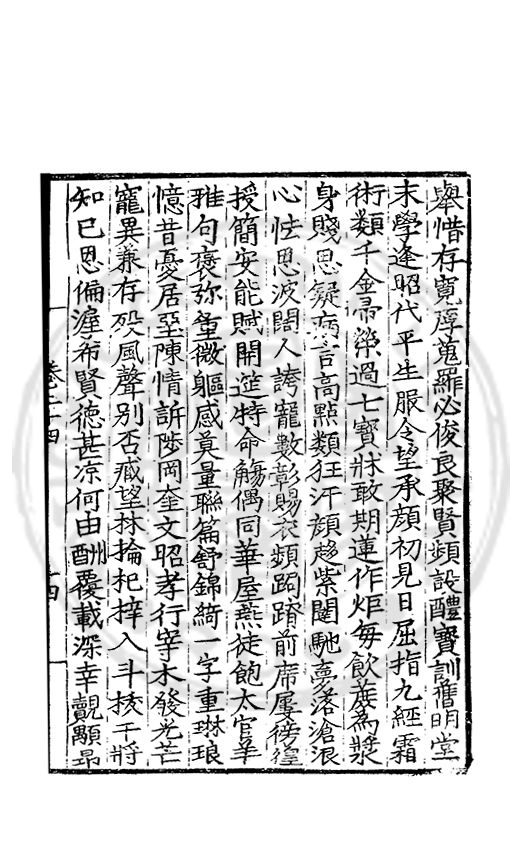 舉惜存寬厚蒐羅必俊良聚賢頻設醴寶訓舊明堂
末學逢昭代平生服令望承顏初見日屈指九經霜
術類千金帚榮過七寶牀敢期蓮作炬每飲蔗為漿
身賤思疑病言高點類狂汗顏趨紫闥馳夢落滄浪
心怯恩波闊人誇寵數彰賜衣頻跼蹐前席屢徬徨
授簡安能賦開筵特命觴偶同華屋燕徒飽太官羊
雅句褒彌重微軀感莫量聯篇舒錦綺一字重琳琅
憶昔憂居堊陳情訴陟岡奎文昭孝行宰木發光芒
寵異兼存歿風聲別否臧望林掄杞梓入斗掞干將
知已恩偏渥希賢德甚凉何由酬覆載深幸覿顒昂